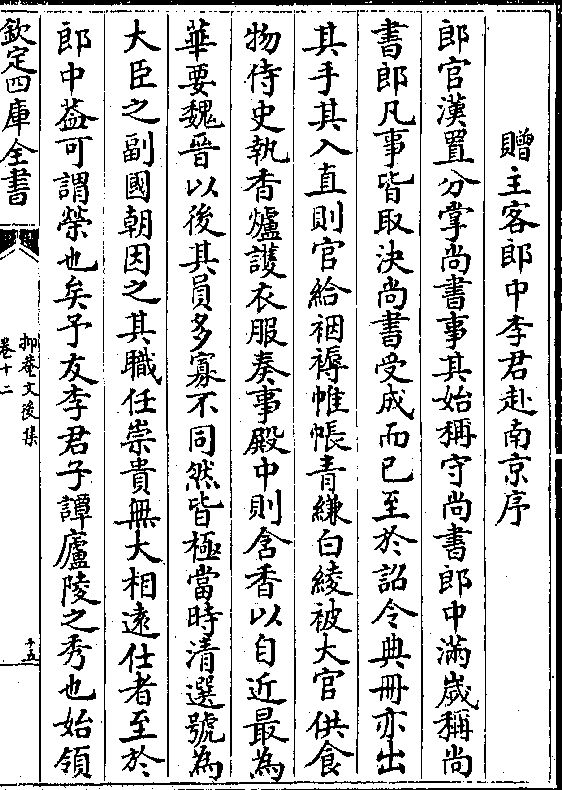 贈主客郎中李君赴南京序
郎官漢置分掌尚書事其始稱守尚書郎中滿歲稱尚
書郎凡事皆取決尚書受成而已至於詔令典冊亦出
其手其入直則官給裀褥帷帳青縑白綾被大官供食
物侍史執香爐護衣服奏事殿中則含香以自近最為
華要魏晉以後其員多寡不同然皆極當時清選號為
大臣之副國朝因之其職任崇貴無大相逺仕者至於
郎中葢可謂榮也矣予友李君子譚廬陵之秀也始領
欽定四庫全書
抑菴文後集
卷十二
十五